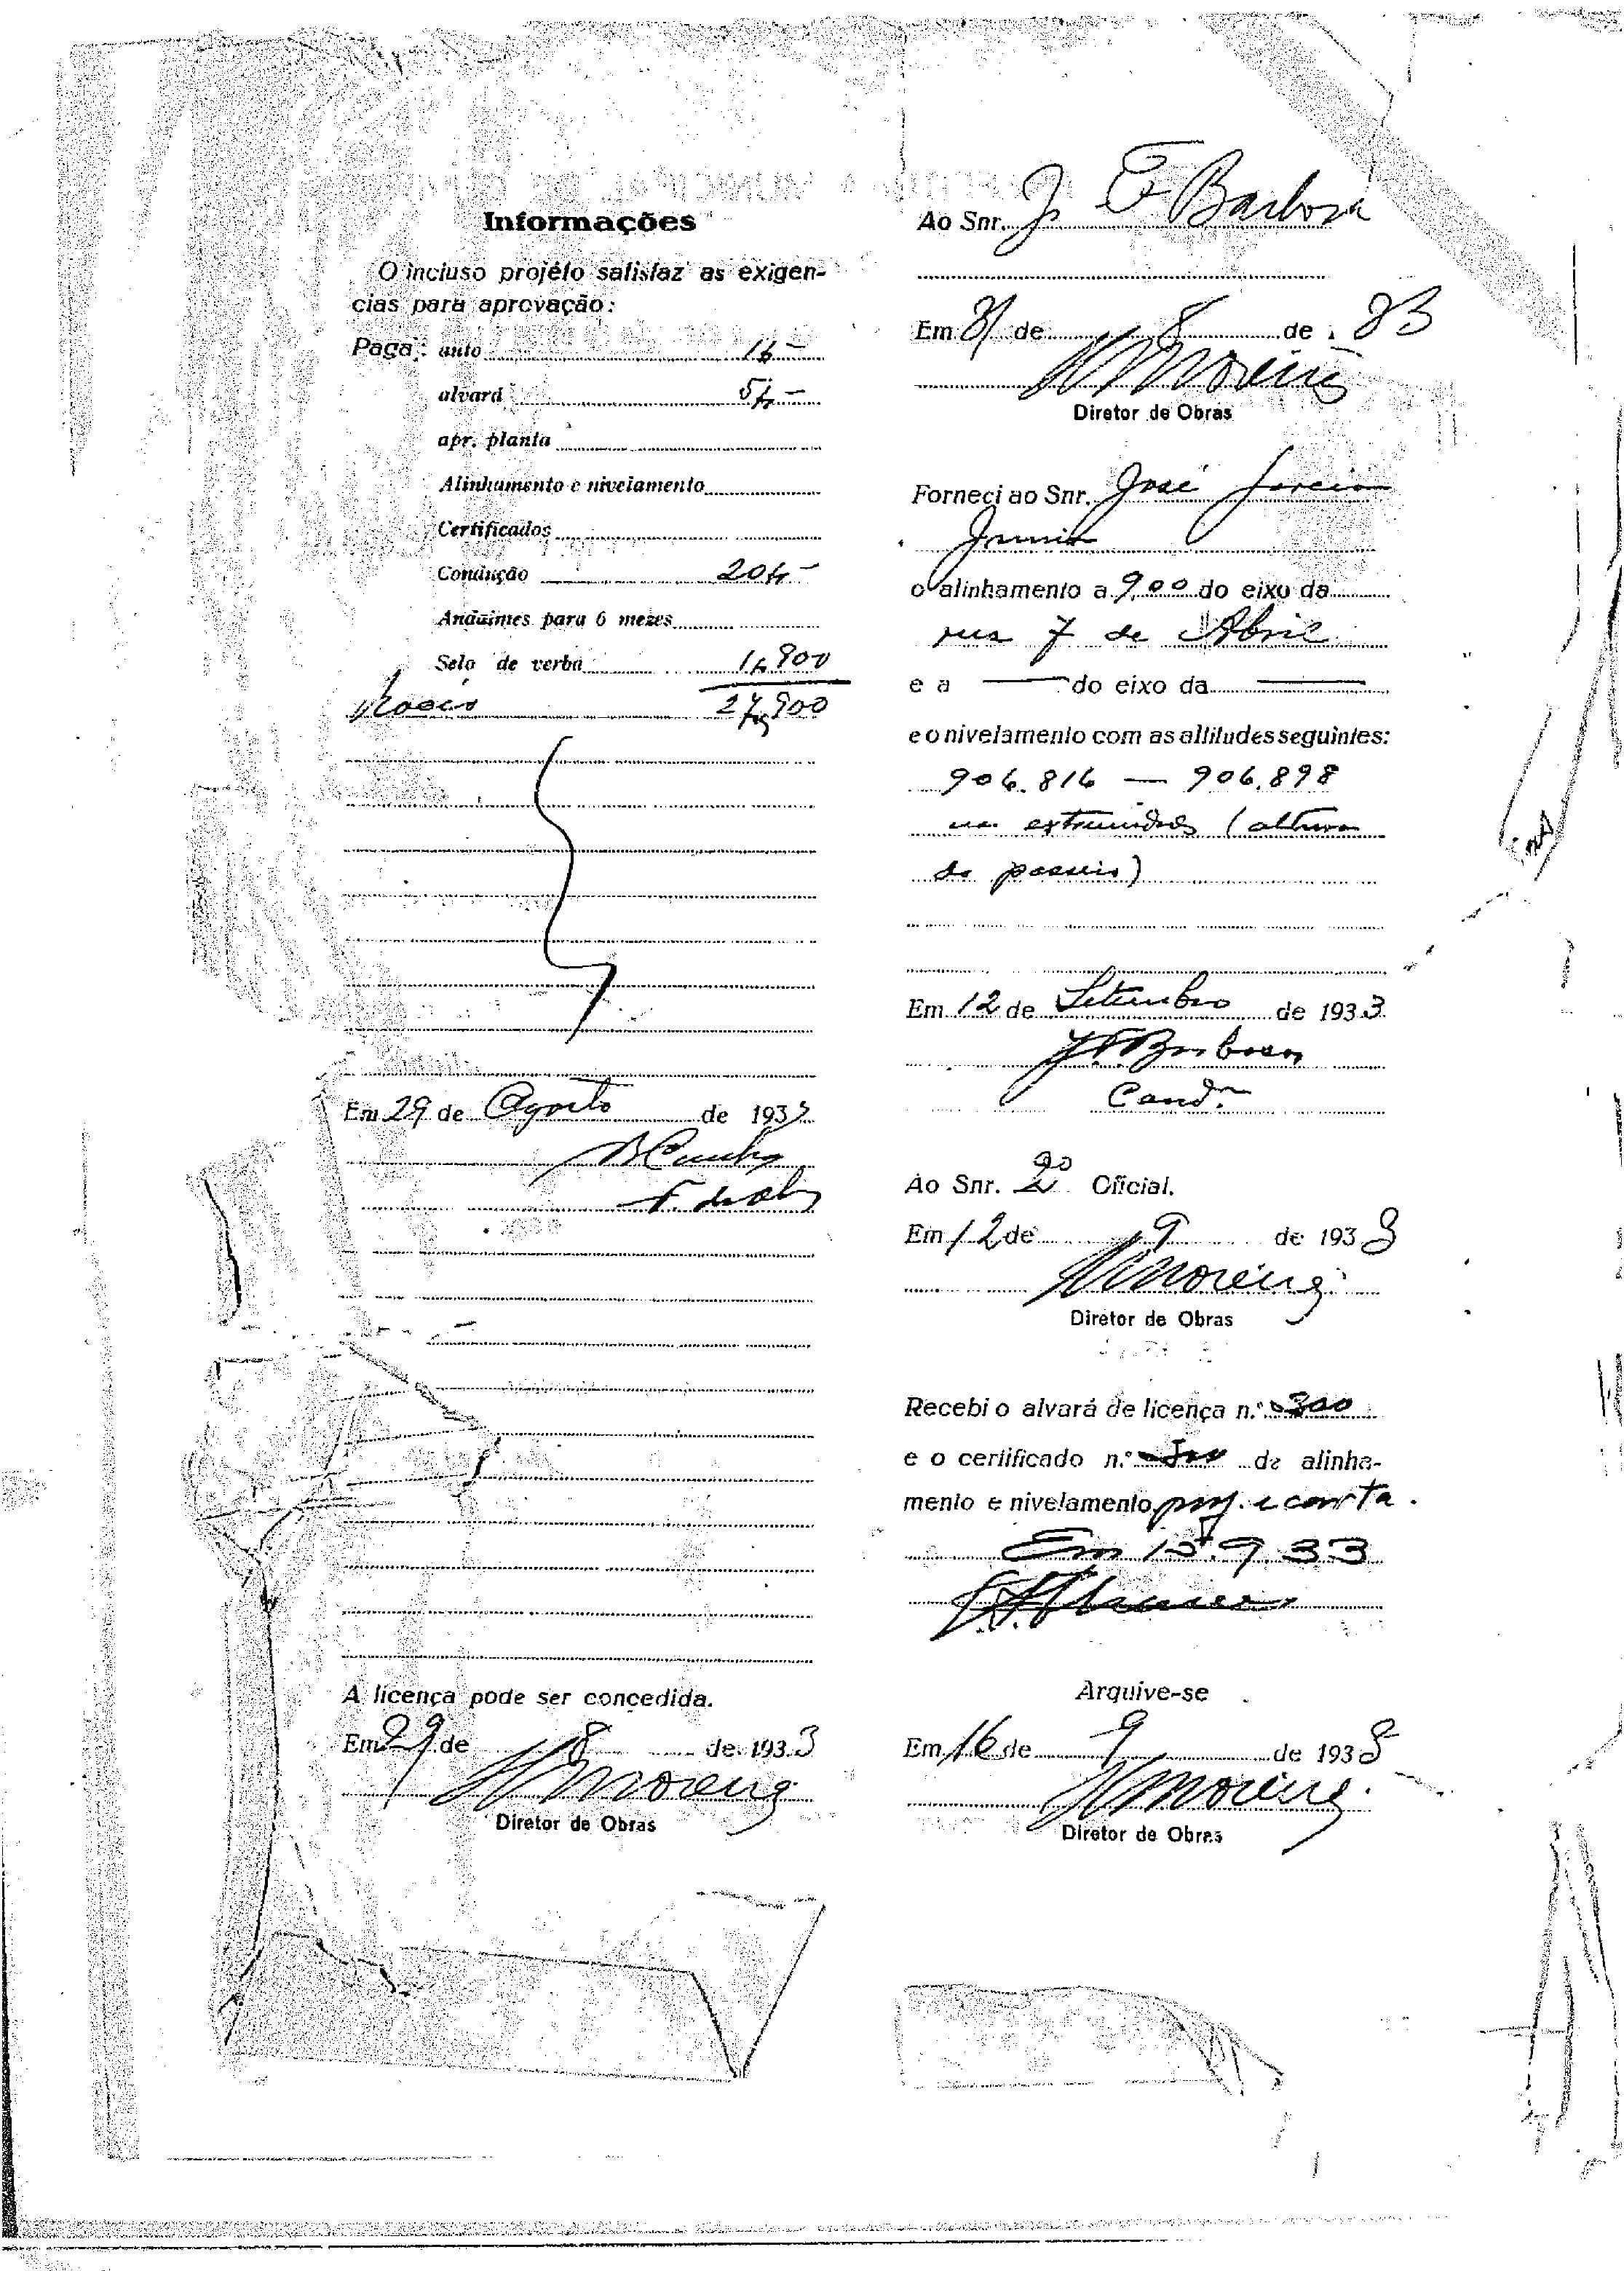 Informações
O incluso projéto satisfaz as exigen-
cias para aprovação:
Paga: auto 1$-
alvará 5$-
apr. planta
Alinhamento e nivelamento
Certificados
Condução 20$-
Andaimes para 6 mezes
Selo de verba 1$900
27$900
Em 29 de Agosto de 1933
A licença pode ser concedida.
Em 29 de 8 de 1933
Diretor de Obras
Ao Snr. J. E Barbosa
Em 31 de 8 de 33
Diretor de Obras
Forneci ao Snr. José
Junior
o alinhamento a 9,00 do eixo da
rua 7 de Abril
e a — do eixo da —
e o nivelamento com as altitudes seguintes:
906.816 — 906.898
nas extremidades (altura
do passeio)
Em 12 de Setembro de 1933
Ao Snr. 2º Oficial.
Em 12 de 9 de 1933
Diretor de Obras
Recebi o alvará de licença n.º 300
e o certificado n.º de alinha-
mento e nivelamento proj. e conta.
Em 15.9.33
Arquive-se
Em 16 de 9 de 1933
Diretor de Obras